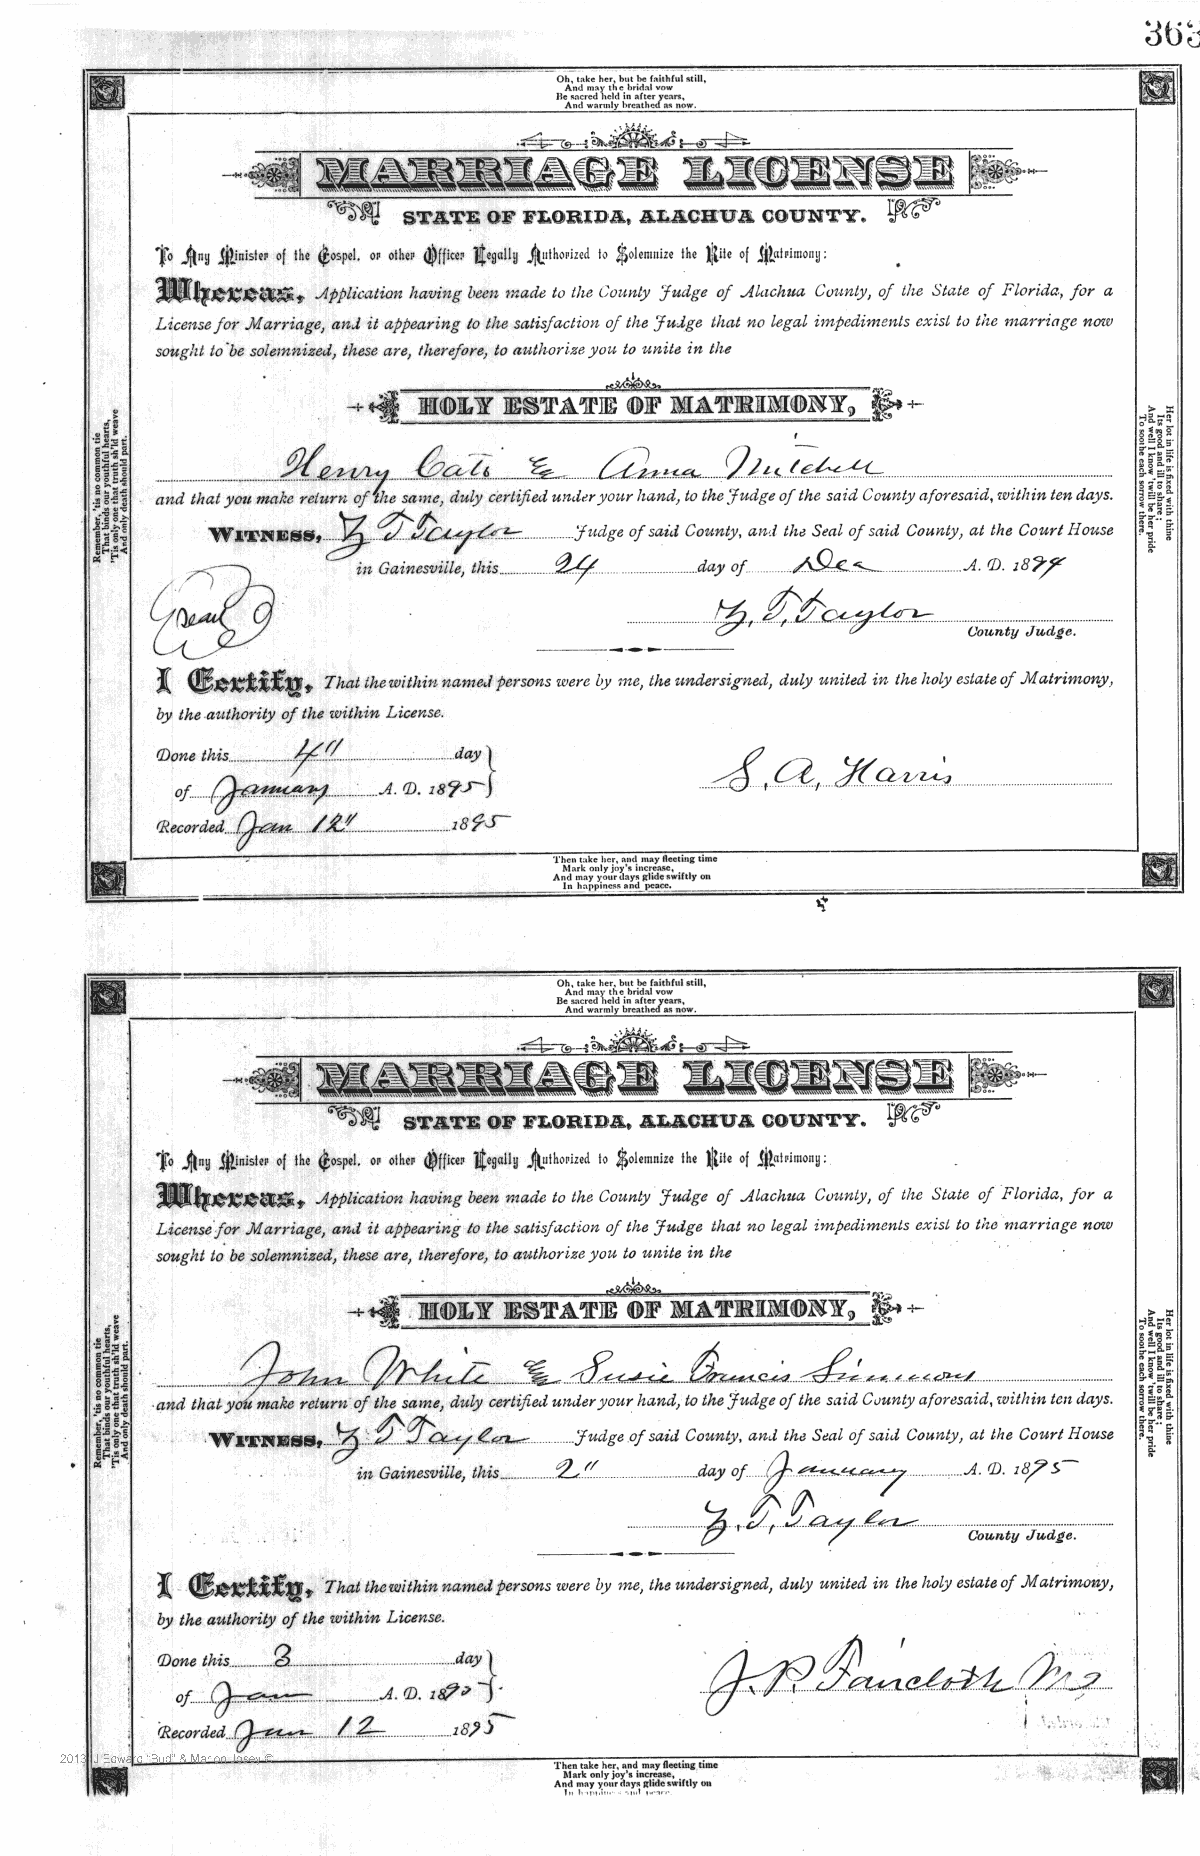 363
Oh, take her, but be faithful still,
And may the bridal vow
Be sacred held in after years,
And warmly breathed as now.
MARRIAGE LICENSE
STATE OF FLORIDA, ALACHUA COUNTY.
To Any Minister of the Gospel, or other Officer Legally Authorized to Solemnize the Rite of Matrimony:
Whereas, Application having been made to the County Judge of Alachua County, of the State of Florida, for a
License for Marriage, and it appearing to the satisfaction of the Judge that no legal impediments exist to the marriage now
sought to be solemnized, these are, therefore, to authorize you to unite in the
HOLY ESTATE OF MATRIMONY,
Remember, 'tis no common tie
That binds our youthful hearts,
'Tis only one that truth sh'ld weave
And only death should part.
Her lot in life is fixed with thine
Its good and ill to share;
And well I know 'twill be her pride
To soothe each sorrow there.
Henry Cato & Anna Mitchell
and that you make return of the same, duly certified under your hand, to the Judge of the said County aforesaid, within ten days.
WITNESS, Z T Taylor Judge of said County, and the Seal of said County, at the Court House
in Gainesville, this 24 day of Dec A. D. 1894
Seal
Z. T. Taylor
County Judge.
I Certify, That the within named persons were by me, the undersigned, duly united in the holy estate of Matrimony,
by the authority of the within License.
Done this 4" day
of January A. D. 1895
S. A. Harris
Recorded Jan 12" 1895
Then take her, and may fleeting time
Mark only joy's increase,
And may your days glide swiftly on
In happiness and peace.
Oh, take her, but be faithful still,
And may the bridal vow
Be sacred held in after years,
And warmly breathed as now.
MARRIAGE LICENSE
STATE OF FLORIDA, ALACHUA COUNTY.
To Any Minister of the Gospel, or other Officer Legally Authorized to Solemnize the Rite of Matrimony:
Whereas, Application having been made to the County Judge of Alachua County, of the State of Florida, for a
License for Marriage, and it appearing to the satisfaction of the Judge that no legal impediments exist to the marriage now
sought to be solemnized, these are, therefore, to authorize you to unite in the
HOLY ESTATE OF MATRIMONY,
Remember, 'tis no common tie
That binds our youthful hearts,
'Tis only one that truth sh'ld weave
And only death should part.
Her lot in life is fixed with thine
Its good and ill to share;
And well I know 'twill be her pride
To soothe each sorrow there.
John White & Susie Francis Simmons
and that you make return of the same, duly certified under your hand, to the Judge of the said County aforesaid, within ten days.
WITNESS, Z T Taylor Judge of said County, and the Seal of said County, at the Court House
in Gainesville, this 2" day of January A. D. 1895
Z. T. Taylor
County Judge.
I Certify, That the within named persons were by me, the undersigned, duly united in the holy estate of Matrimony,
by the authority of the within License.
Done this 3 day
of Jan A. D. 1895
J. P. Faircloth
Recorded Jan 12 1895
2013 J Edward "Bud" & Marion Josey ©
Then take her, and may fleeting time
Mark only joy's increase,
And may your days glide swiftly on
In happiness and peace.